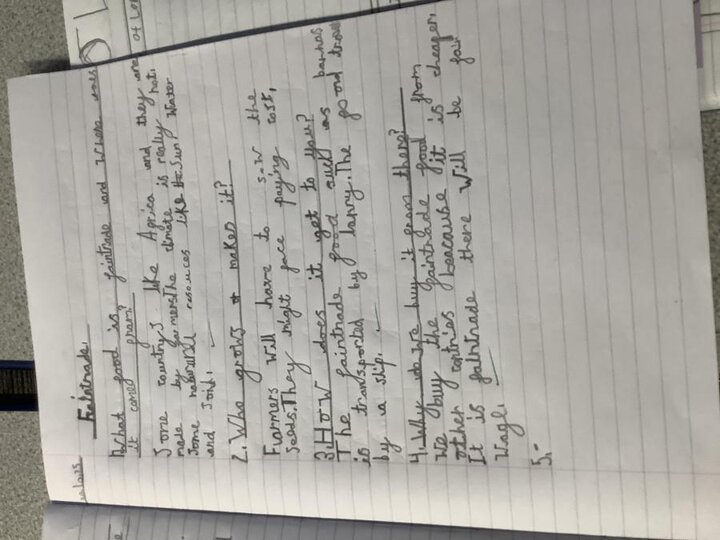 Fairtrade.
1. What food is fairtrade and where does
it comes from?
Some countrys like Africa and they are
made by farmers. The climate is really hot.
Some natural resources like the Sun, Water
and soil.
2. Who grows makes it?
Farmers will have to sow the
seeds. They might face paying cost.
3. How does it get to you?
The fairtrade food such as banas
is transported by lorry. The food travel
by a ship.
4. Why do we buy it from there?
We buy the fairtrade food from
other contries beacause it is cheaper.
It is fairtrade there will be fair
Wage.
5.-